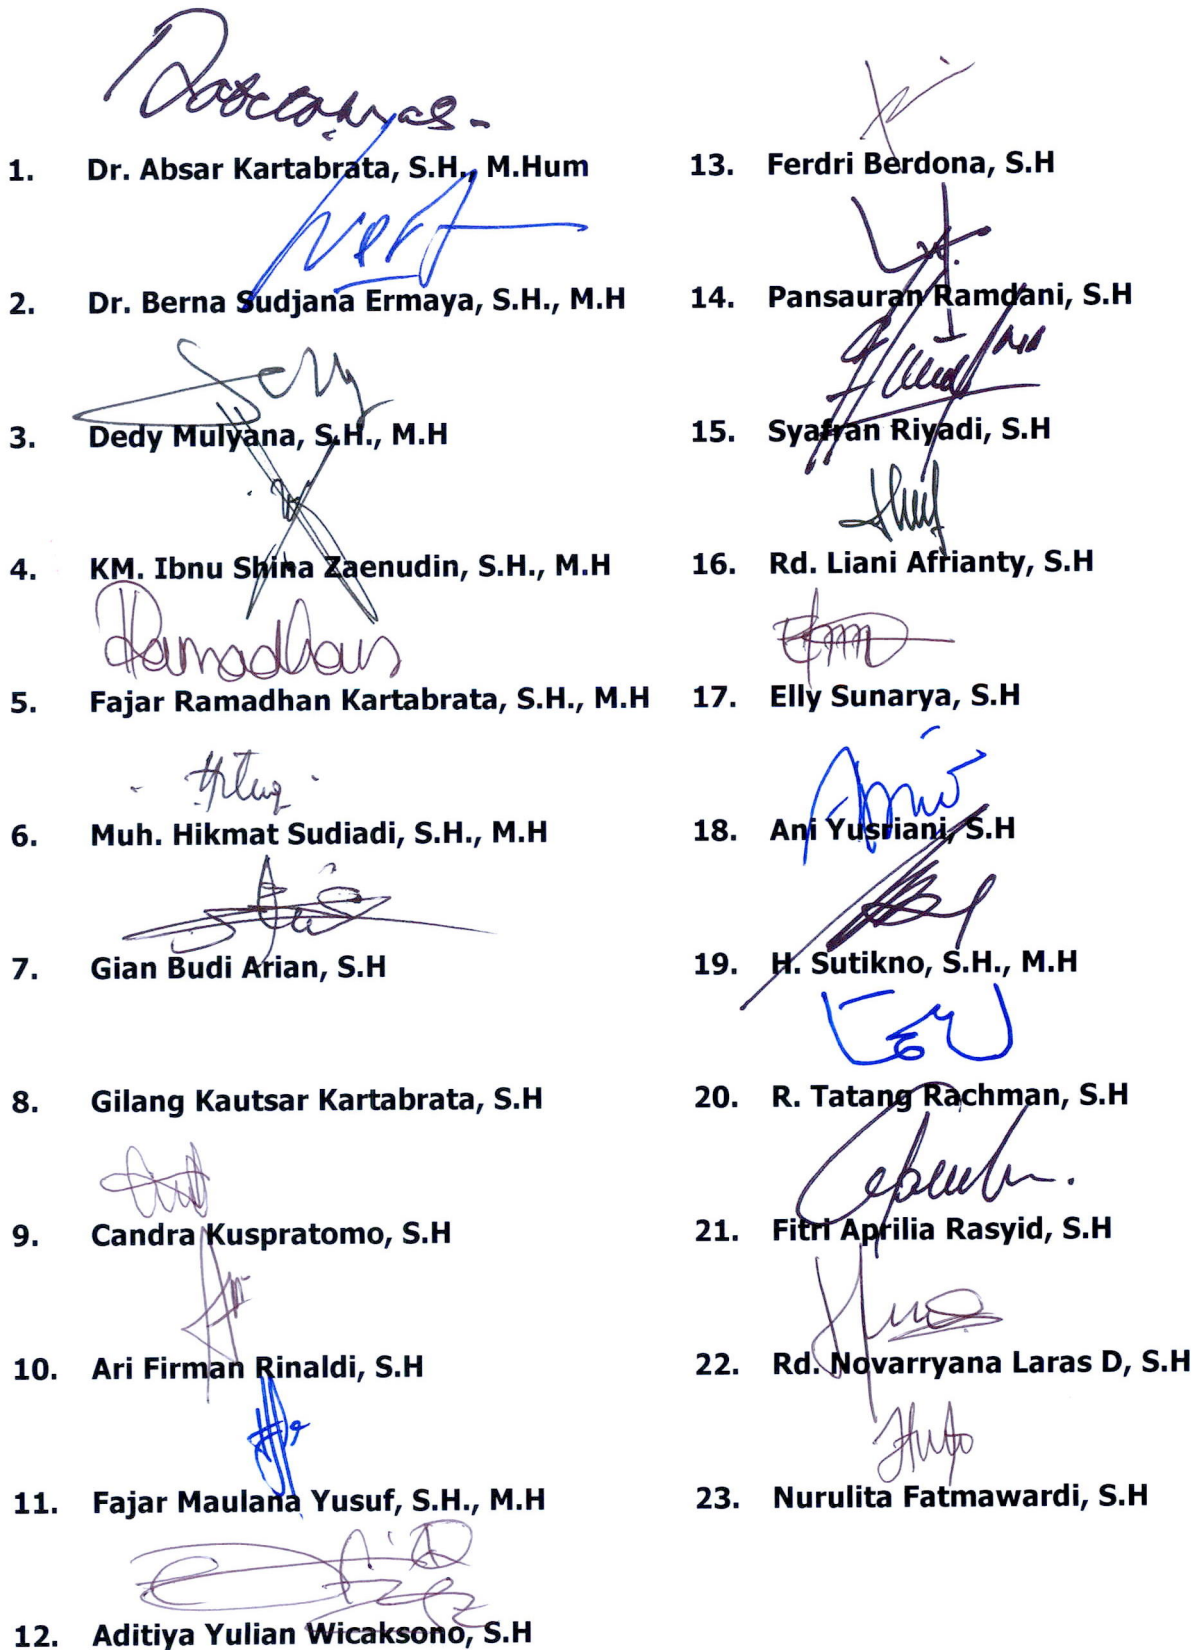 1. Dr. Absar Kartabrata, S.H., M.Hum
2. Dr. Berna Sudjana Ermaya, S.H., M.H
3. Dedy Mulyana, S.H., M.H
4. KM. Ibnu Shina Zaenudin, S.H., M.H
5. Fajar Ramadhan Kartabrata, S.H., M.H
6. Muh. Hikmat Sudiadi, S.H., M.H
7. Gian Budi Arian, S.H
8. Gilang Kautsar Kartabrata, S.H
9. Candra Kuspratomo, S.H
10. Ari Firman Rinaldi, S.H
11. Fajar Maulana Yusuf, S.H., M.H
12. Aditiya Yulian Wicaksono, S.H
13. Ferdri Berdona, S.H
14. Pansauran Ramdani, S.H
15. Syafran Riyadi, S.H
16. Rd. Liani Afrianty, S.H
17. Elly Sunarya, S.H
18. Ani Yusriani, S.H
19. H. Sutikno, S.H., M.H
20. R. Tatang Rachman, S.H
21. Fitri Aprilia Rasyid, S.H
22. Rd. Novarryana Laras D, S.H
23. Nurulita Fatmawardi, S.H